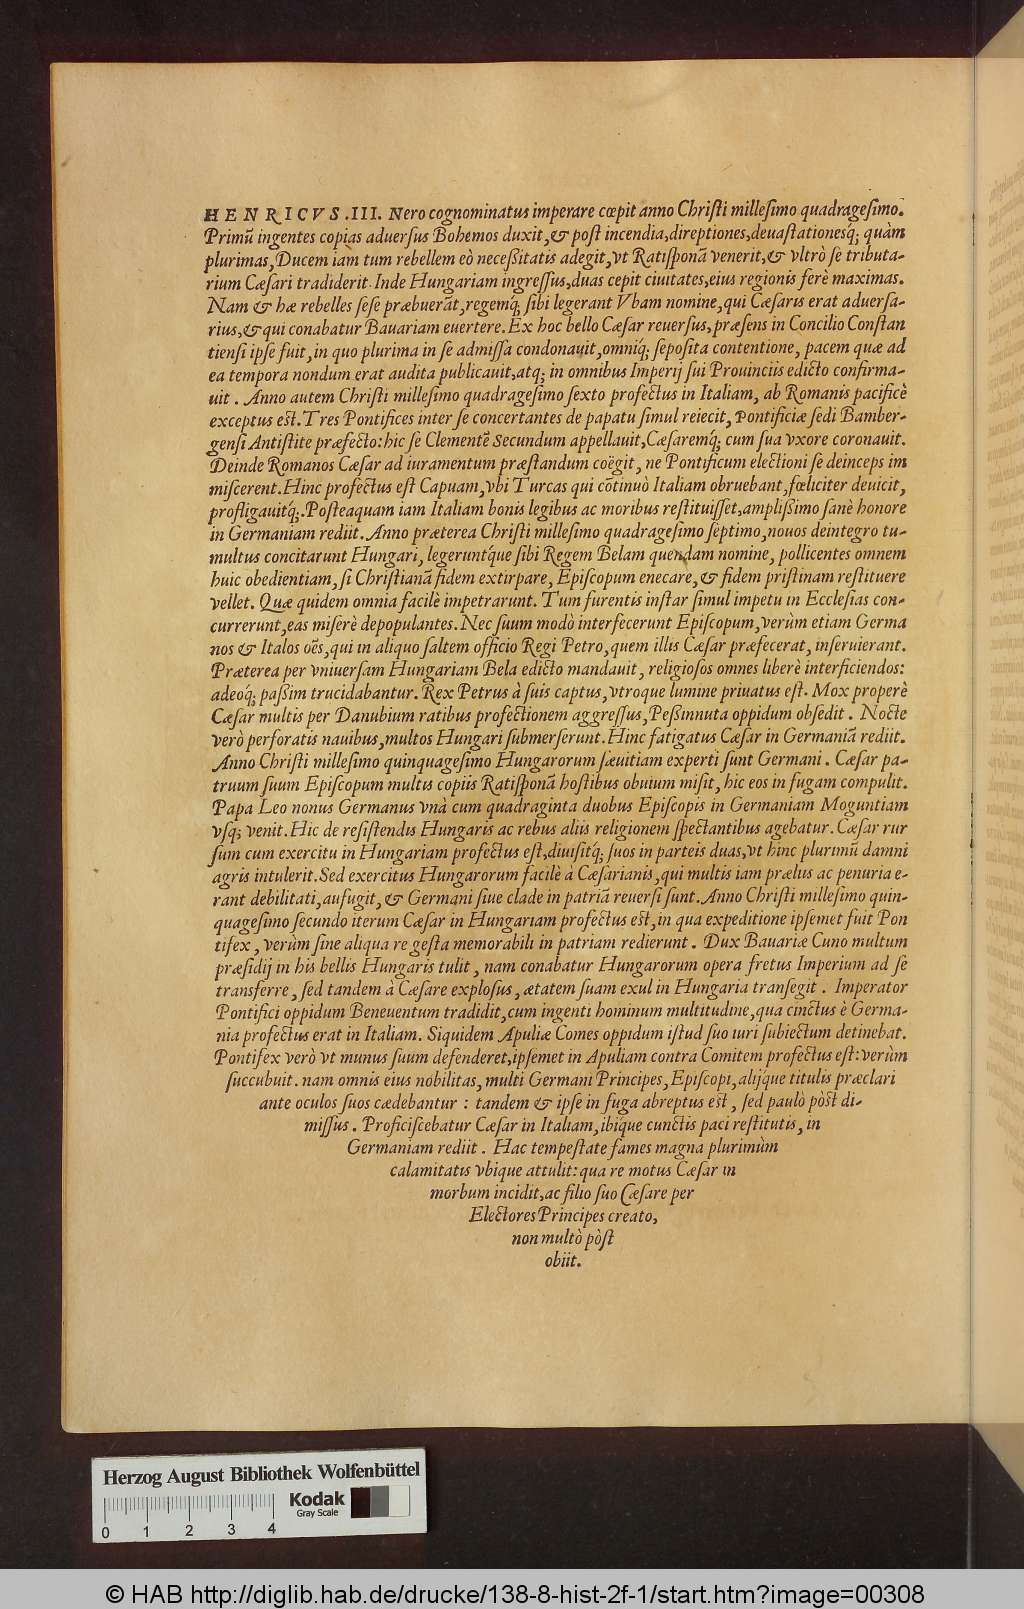 HENRICVS.III. Nero cognominatus imperare cœpit anno Christi millesimo quadragesimo.
Primũ ingentes copias aduersus Bohemos duxit, & post incendia, direptiones, deuastationesq; quàm
plurimas, Ducem iam tum rebellem eò necessitatis adegit, vt Ratisponã venerit, & vltrò se tributa-
rium Cæsari tradiderit. Inde Hungariam ingressus, duas cepit ciuitates, eius regionis ferè maximas.
Nam & hæ rebelles sese præbuerãt, regemq́; sibi legerant Vbam nomine, qui Cæsaris erat aduersa-
rius, & qui conabatur Bauariam euertere. Ex hoc bello Cæsar reuersus, præsens in Concilio Constan
tiensi ipse fuit, in quo plurima in se admissa condonauit, omniq́; seposita contentione, pacem quæ ad
ea tempora nondum erat audita publicauit, atq; in omnibus Imperij sui Prouinciis edicto confirma-
uit. Anno autem Christi millesimo quadragesimo sexto profectus in Italiam, ab Romanis pacificè
exceptus est. Tres Pontifices inter se concertantes de papatu simul reiecit, Pontificiæ sedi Bamber-
gensi Antistite præfecto: hic se Clementẽ Secundum appellauit, Cæsaremq́; cum sua vxore coronauit.
Deinde Romanos Cæsar ad iuramentum præstandum coëgit, ne Pontificum electioni se deinceps im
miscerent. Hinc profectus est Capuam, vbi Turcas qui cõtinuò Italiam obruebant, fœliciter deuicit,
profligauitq́;. Posteaquam iam Italiam bonis legibus ac moribus restituisset, amplissimo sanè honore
in Germaniam rediit. Anno præterea Christi millesimo quadragesimo septimo, nouos deintegro tu-
multus concitarunt Hungari, legeruntq́ue sibi Regem Belam quendam nomine, pollicentes omnem
huic obedientiam, si Christianã fidem extirpare, Episcopum enecare, & fidem pristinam restituere
vellet. Quæ quidem omnia facilè impetrarunt. Tum furentis instar simul impetu in Ecclesias con-
currerunt, eas miserè depopulantes. Nec suum modò interfecerunt Episcopum, verùm etiam Germa
nos & Italos oẽs, qui in aliquo saltem officio Regi Petro, quem illis Cæsar præfecerat, inseruierant.
Præterea per vniuersam Hungariam Bela edicto mandauit, religiosos omnes liberè interficiendos:
adeoq́; passim trucidabantur. Rex Petrus à suis captus, vtroque lumine priuatus est. Mox properè
Cæsar multis per Danubium ratibus profectionem aggressus, Pessinnuta oppidum obsedit. Nocte
verò perforatis nauibus, multos Hungari submerserunt. Hinc fatigatus Cæsar in Germaniã rediit.
Anno Christi millesimo quinquagesimo Hungarorum sæuitiam experti sunt Germani. Cæsar pa-
truum suum Episcopum multis copiis Ratisponã hostibus obuium misit, hic eos in fugam compulit.
Papa Leo nonus Germanus vnà cum quadraginta duobus Episcopis in Germaniam Moguntiam
vsq; venit. Hic de resistendis Hungaris ac rebus aliis religionem spectantibus agebatur. Cæsar rur
sum cum exercitu in Hungariam profectus est, diuisitq́; suos in parteis duas, vt hinc plurimũ damni
agris intulerit. Sed exercitus Hungarorum facilè à Cæsarianis, qui multis iam prælus ac penuria e-
rant debilitati, aufugit, & Germani siue clade in patriã reuersi sunt. Anno Christi millesimo quin-
quagesimo secundo iterum Cæsar in Hungariam profectus est, in qua expeditione ipsemet fuit Pon
tifex, verùm sine aliqua re gesta memorabili in patriam redierunt. Dux Bauariæ Cuno multum
præsidij in his bellis Hungaris tulit, nam conabatur Hungarorum opera fretus Imperium ad se
transferre, sed tandem à Cæsare explosus, ætatem suam exul in Hungaria transegit. Imperator
Pontifici oppidum Beneuentum tradidit, cum ingenti hominum multitudine, qua cinctus è Germa-
nia profectus erat in Italiam. Siquidem Apuliæ Comes oppidum istud suo iuri subiectum detinebat.
Pontifex verò vt munus suum defenderet, ipsemet in Apuliam contra Comitem profectus est: verùm
succubuit. nam omnis eius nobilitas, multi Germani Principes, Episcopi, alijq́ue titulis præclari
ante oculos suos cædebantur: tandem & ipse in fuga abreptus est, sed paulò pòst di-
missus. Proficiscebatur Cæsar in Italiam, ibiq́ue cunctis paci restitutis, in
Germaniam rediit. Hac tempestate fames magna plurimùm
calamitatis vbique attulit: qua re motus Cæsar in
morbum incidit, ac filio suo Cæsare per
Electores Principes creato,
non multò pòst
obiit.
Herzog August Bibliothek Wolfenbüttel
Kodak
Gray Scale
0 1 2 3 4
© HAB http://diglib.hab.de/drucke/138-8-hist-2f-1/start.htm?image=00308